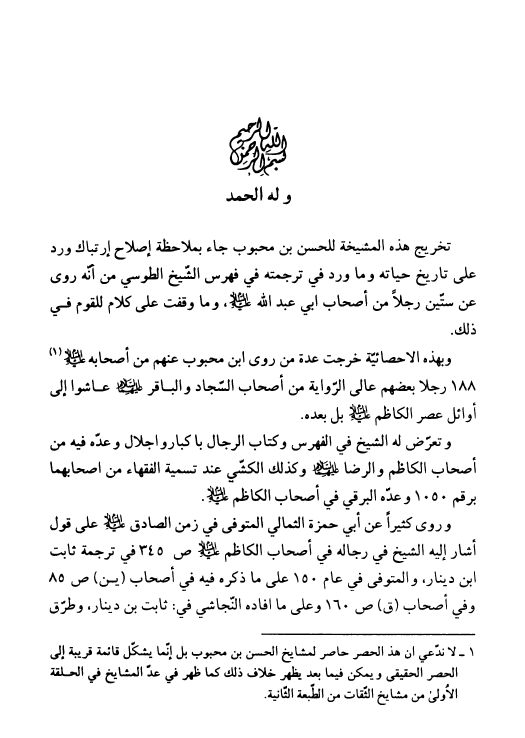 بسم الله الرحمن الرحيم
وله الحمد
تخريج هذه المشيخة للحسن بن محبوب جاء بملاحظة إصلاح إرتباك ورد
على تاريخ حياته وما ورد في ترجمته في فهرس الشّيخ الطوسي من أنّه روى
عن ستّين رجلاً من أصحاب ابي عبد الله عليه السلام، وما وقفت على كلام للقوم فـي
ذلك.
وبهذه الاحصائيّة خرجت عدة من روى ابن محبوب عنهم من أصحابه عليه السلام (١)
١٨٨ رجلا بعضهم عالى الرّواية من أصحاب السّجاد والبـاقر عليهما السلام عـاشوا إلى
أوائل عصر الكاظم عليه السلام بل بعده.
وتعرّض له الشيخ في الفهرس وكتاب الرجال باكبار واجلال وعدّه فيه من
أصحاب الكاظم والرضا عليهما السلام وكذلك الكشّي عند تسمية الفقهاء من اصحابهما
برقم ١٠٥٠ وعدّه البرقي في أصحاب الكاظم عليه السلام.
وروى كثيراً عن أبي حمزة الثمالي المتوفى في زمن الصادق عليه السلام على قول
أشار إليه الشيخ في رجاله في أصحاب الكاظم عليه السلام ص ٣٤٥ في ترجمة ثابت
ابن دينار، والمتوفى في عام ١٥٠ على ما ذكره فيه في أصحاب (يـن) ص ٨٥
وفي أصحاب (ق) ص ١٦٠ وعلى ما افاده النّجاشي في: ثابت بن دينار، وطرّق
١ ـ لا ندّعي ان هذ الحصر حاصر لمشايخ الحسن بن محبوب بل إنّما يشكّل قائمة قريبة إلى
الحصر الحقيقى ويمكن فيما بعد يظهر خلاف ذلك كما ظهر في عدّ المشايخ في الحـلقة
الأولىٰ من مشايخ الثّقات من الطّبعة الثّانية.